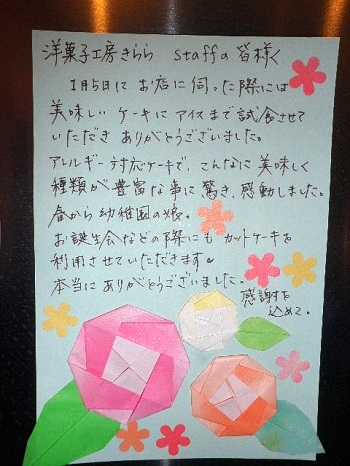 洋菓子工房きらら staffの皆様へ
1月5日に お店に伺った際には
美味しい ケーキに アイスまで試食させて
いただき ありがとうございました。
アレルギー対応ケーキで、こんなに美味しく
種類が豊富な事に驚き、感動しました。
春から幼稚園の娘。
お誕生会などの際にも カットケーキを
利用させていただきます。
本当に ありがとうございました。
感謝を
込めて。